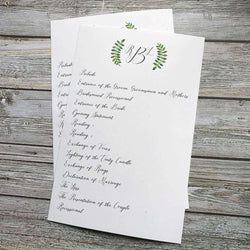 RBL
Prelude
Entrance of the Groom Groomsmen and Mothers
Bridesmaid Processional
Entrance of the Bride
Opening Statement
Reading
Reading
Exchange of Vows
Lighting of the Unity Candle
Exchange of Rings
Declaration of Marriage
The Kiss
The Presentation of the Couple
Recessional
Prelude